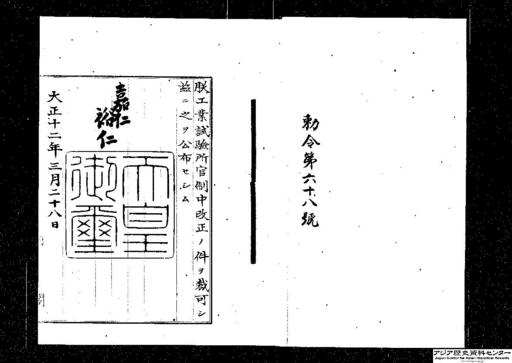 勅令第六十八號
朕工業試驗所官制中改正ノ件ヲ裁可シ
玆ニ之ヲ公布セシム
嘉仁
裕仁
天皇
御璽
大正十二年三月二十八日
アジア歴史資料センター
Japan Center for Asian Historical Records